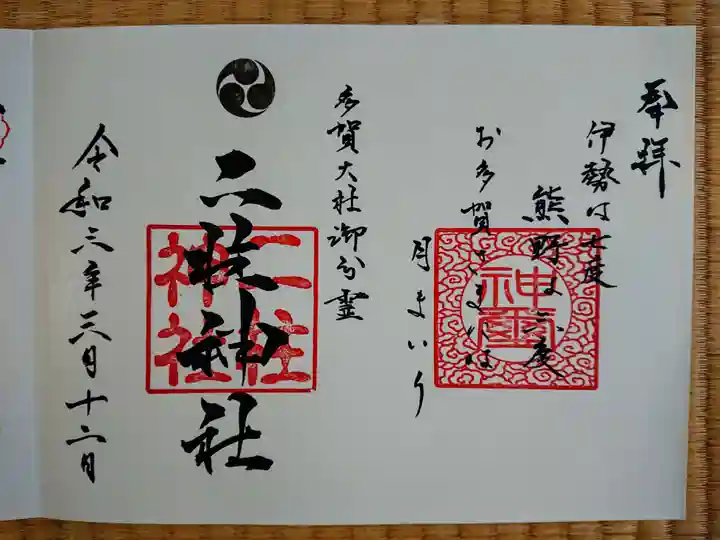 奉拝
伊勢は七度
熊野は三度
お多賀さまは
月まいり
神霊
多賀大社御分霊
二柱神社
二柱
神社
令和三年三月十二日